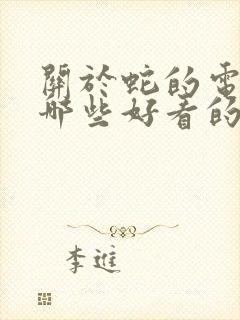 關於蛇的電
哪些好看的
李進